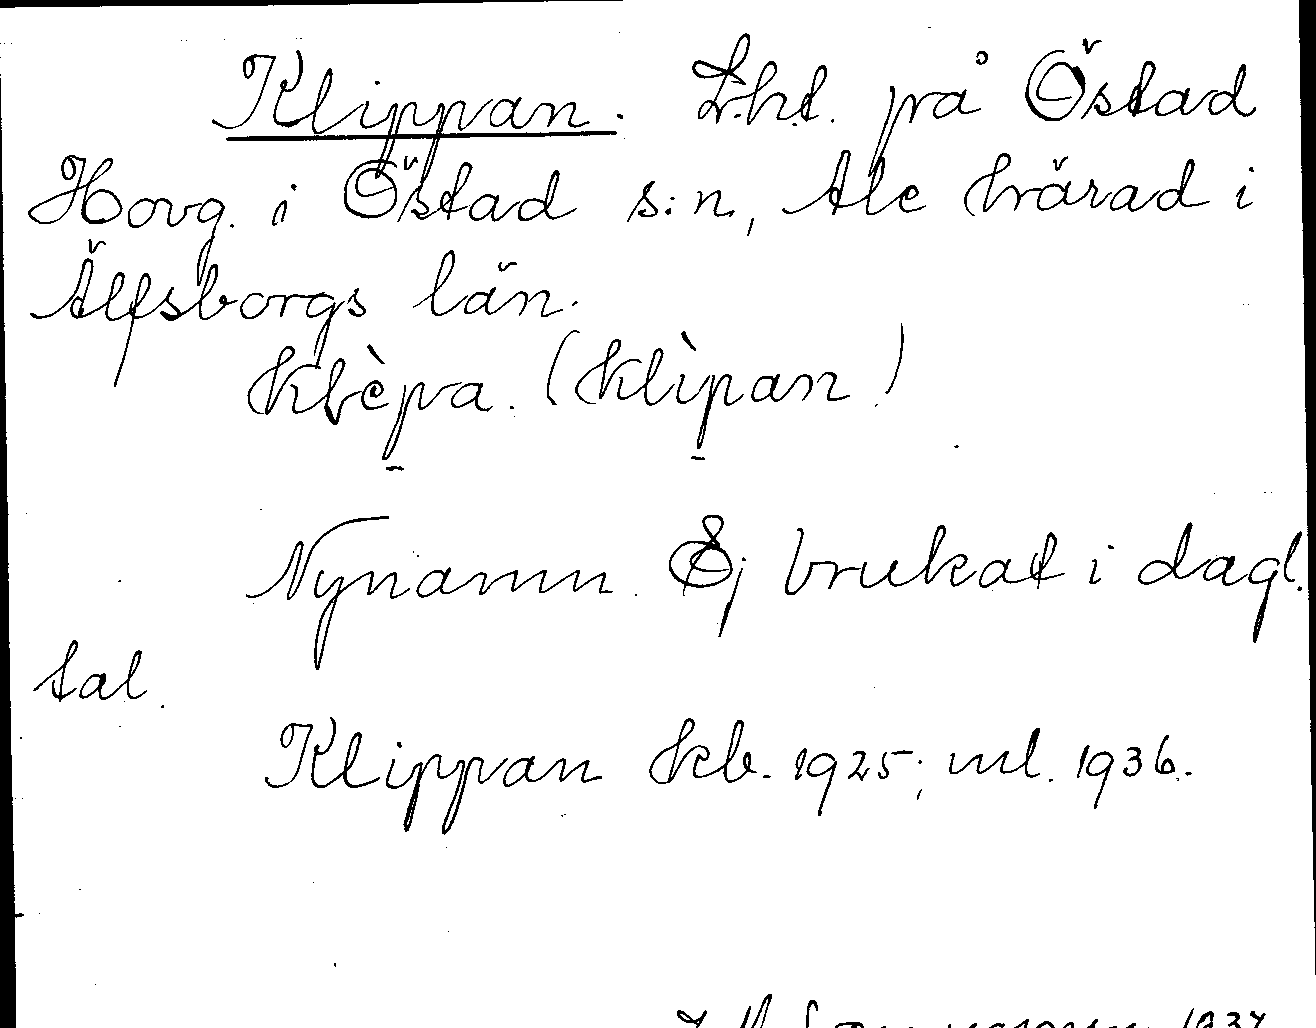 Klippan. Lht. på Östad
Hovg. i Östad s:n, Ale härad i
Älfsborgs län.
klèpa. (klìpan)
Nynamn. Ej brukat i dagl.
tal.
Klippan kb. 1925; ml. 1936.
1937